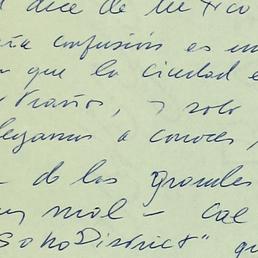 dice de México
confusión es un
que la ciudad e
traños, y solo
legamos a conocer,
- de los grandes
mal - cae
SoHo District" qu